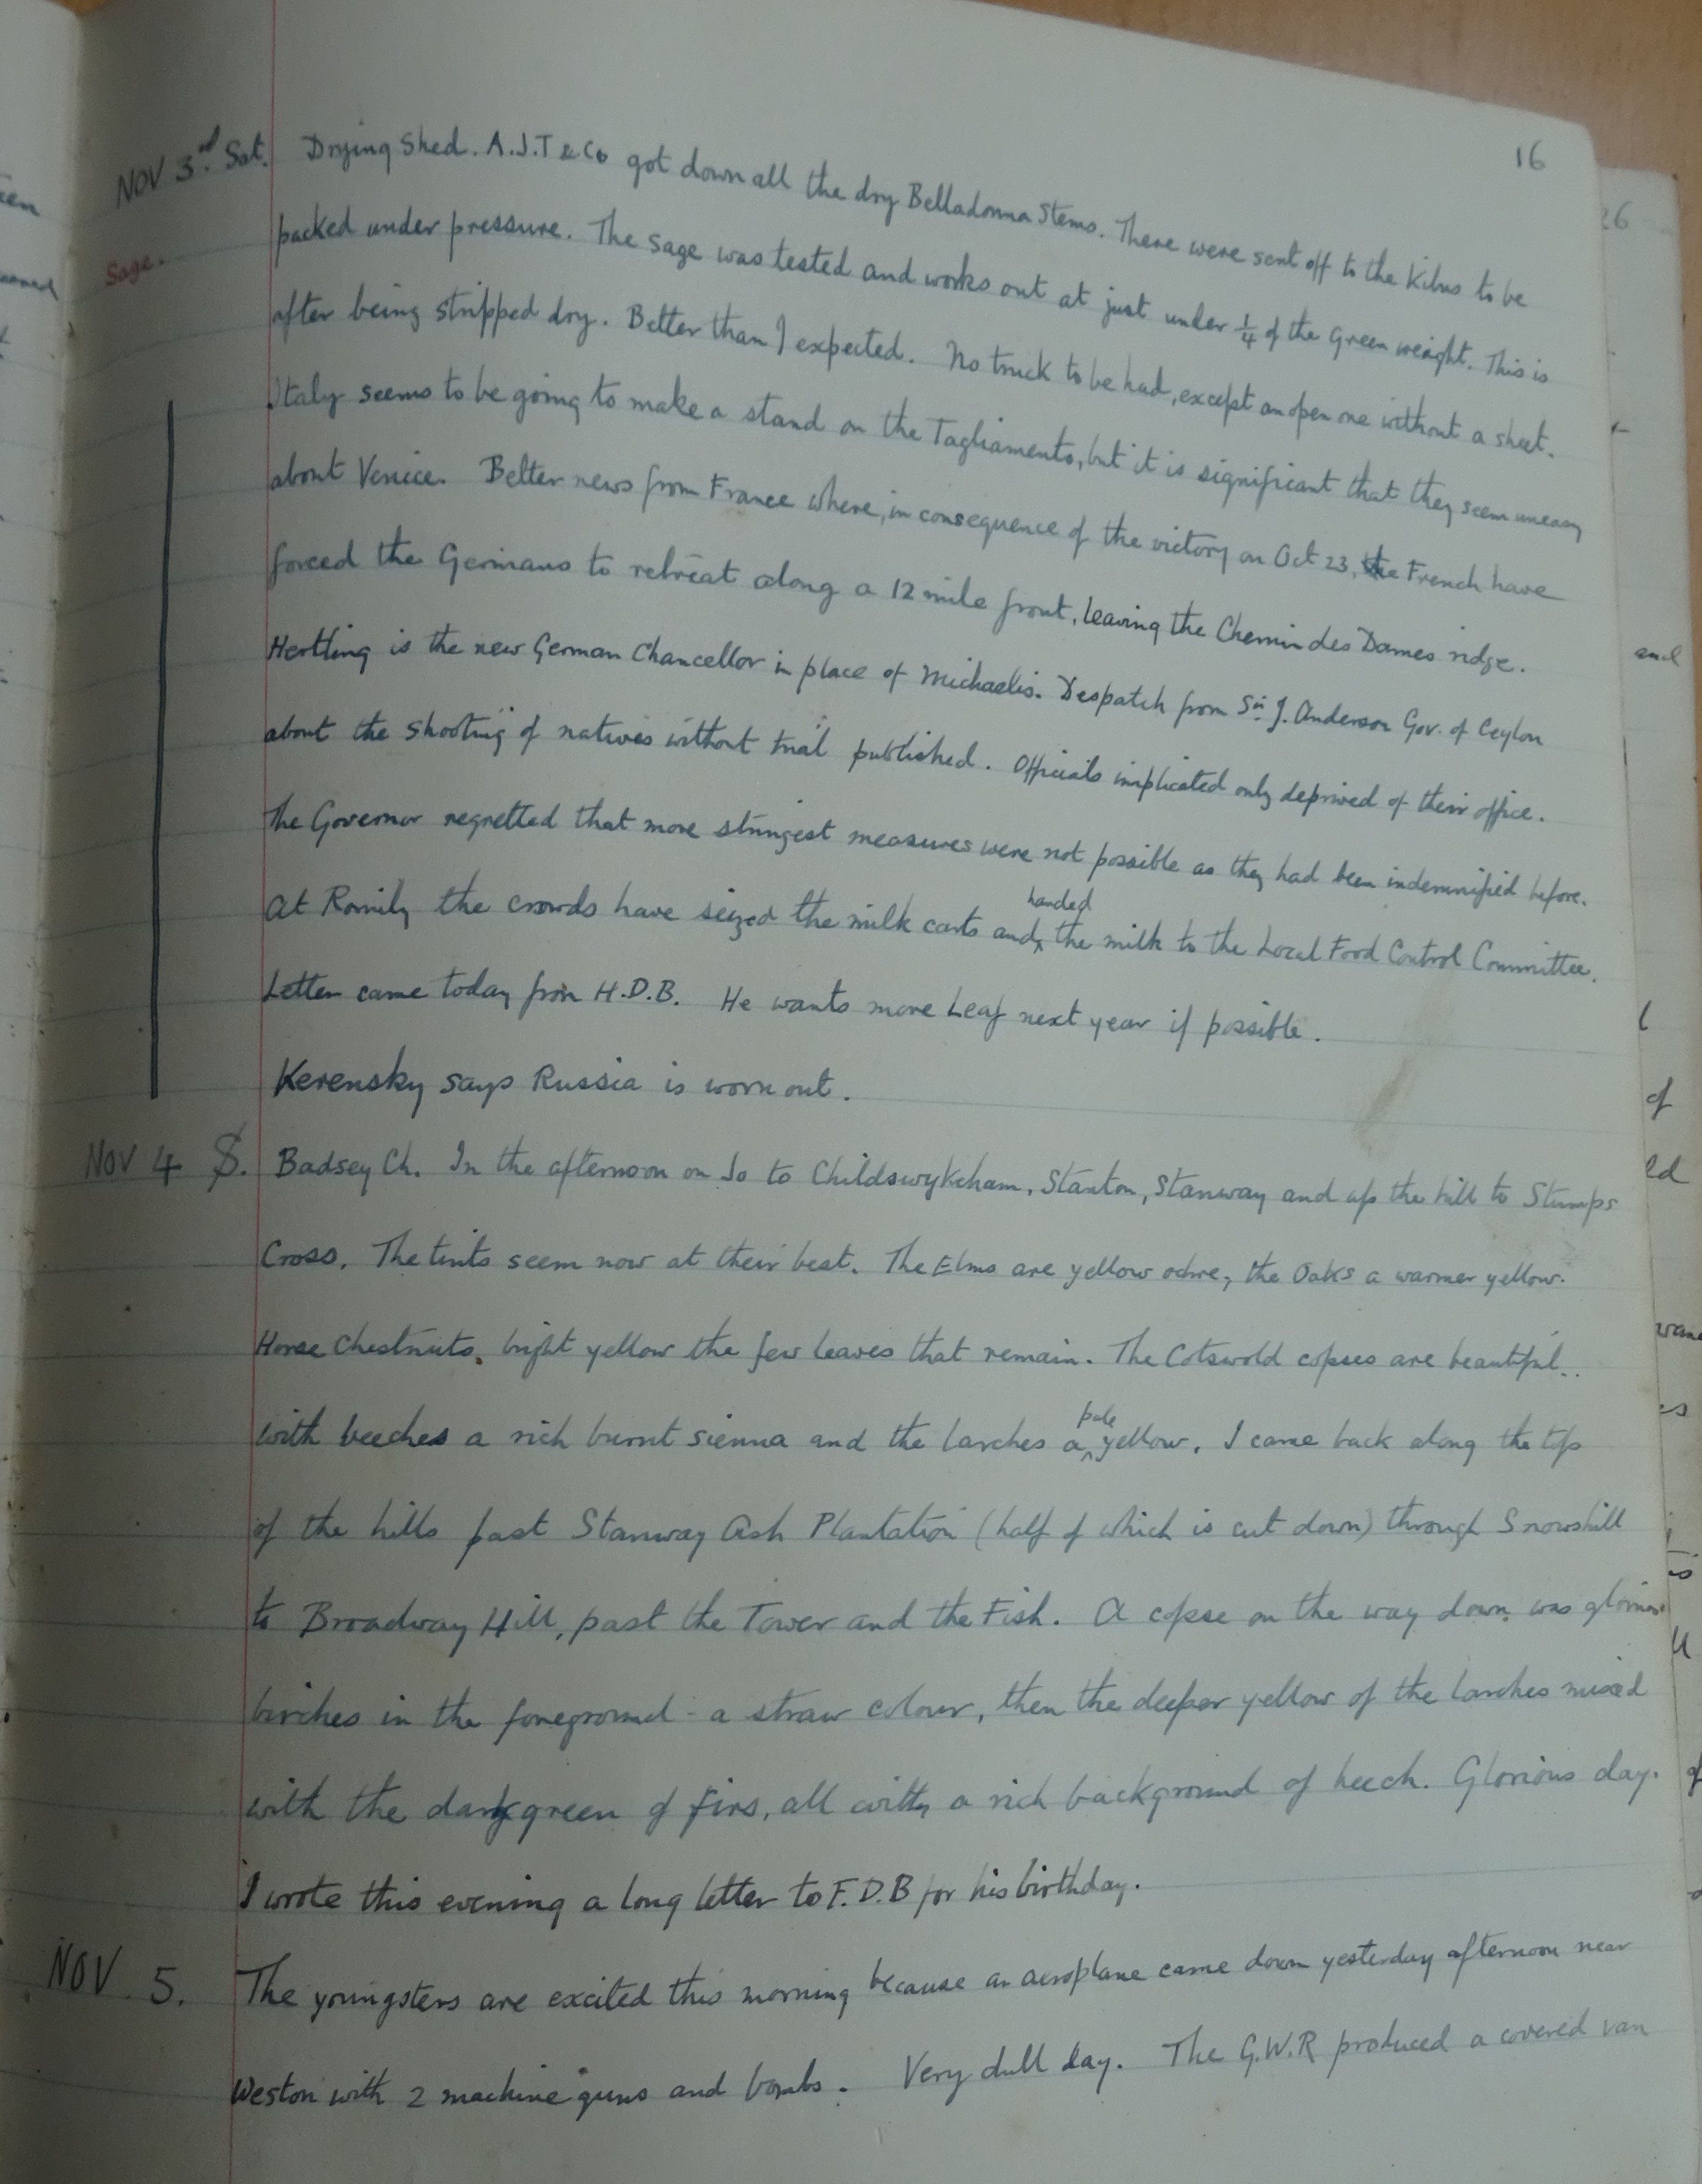 16
NOV 3rd. Sat. Drying Shed. A.J.T & Co got down all the dry Belladonna Stems. There were sent off to the Kilns to be
Sage. packed under pressure. The sage was tested and works out at just under 1/4 of the Green weight. This is
after being stripped dry. Better than I expected. No truck to be had, except an open one without a sheet.
Italy seems to be going to make a stand on the Tagliamento, but it is significant that they seem uneasy
about Venice. Better news from France where, in consequence of the victory on Oct 23, the French have
forced the Germans to retreat along a 12 mile front, leaving the Chemin des Dames ridge.
Hertling is the new German Chancellor in place of Michaelis. Despatch from Sir J. Anderson Gov. of Ceylon
about the shooting of natives without trial published. Officials implicated only deprived of their office.
The Governor regretted that more stringest measures were not possible as they had been indemnified before.
At Romily the crowds have seized the milk carts and handed the milk to the Local Food Control Committee.
Letter came today from H.D.B. He wants more Leaf next year if possible.
Kerensky says Russia is worn out.
NOV 4 S. Badsey Ch. In the afternoon on Jo to Childswykeham, Stanton, Stanway and up the hill to Stumps
Cross. The tints seem now at their best. The Elms are yellow ochre, the Oaks a warmer yellow.
Horse Chestnuts. bright yellow the few leaves that remain. The Cotswold copses are beautiful..
with beeches a rich burnt sienna and the larches a pale yellow. I came back along the top
of the hills past Stanway Ash Plantation (half of which is cut down) through Snowshill
to Broadway Hill, past the Tower and the Fish. A copse on the way down was glorious
birches in the foreground - a straw colour, then the deeper yellow of the larches mixed
with the dark green of firs, all with a rich background of beech. Glorious day.
I wrote this evening a long letter to F.D.B for his birthday.
NOV 5. The youngsters are excited this morning because an aeroplane came down yesterday afternoon near
Weston with 2 machine guns and bombs. Very dull day. The G.W.R produced a covered van